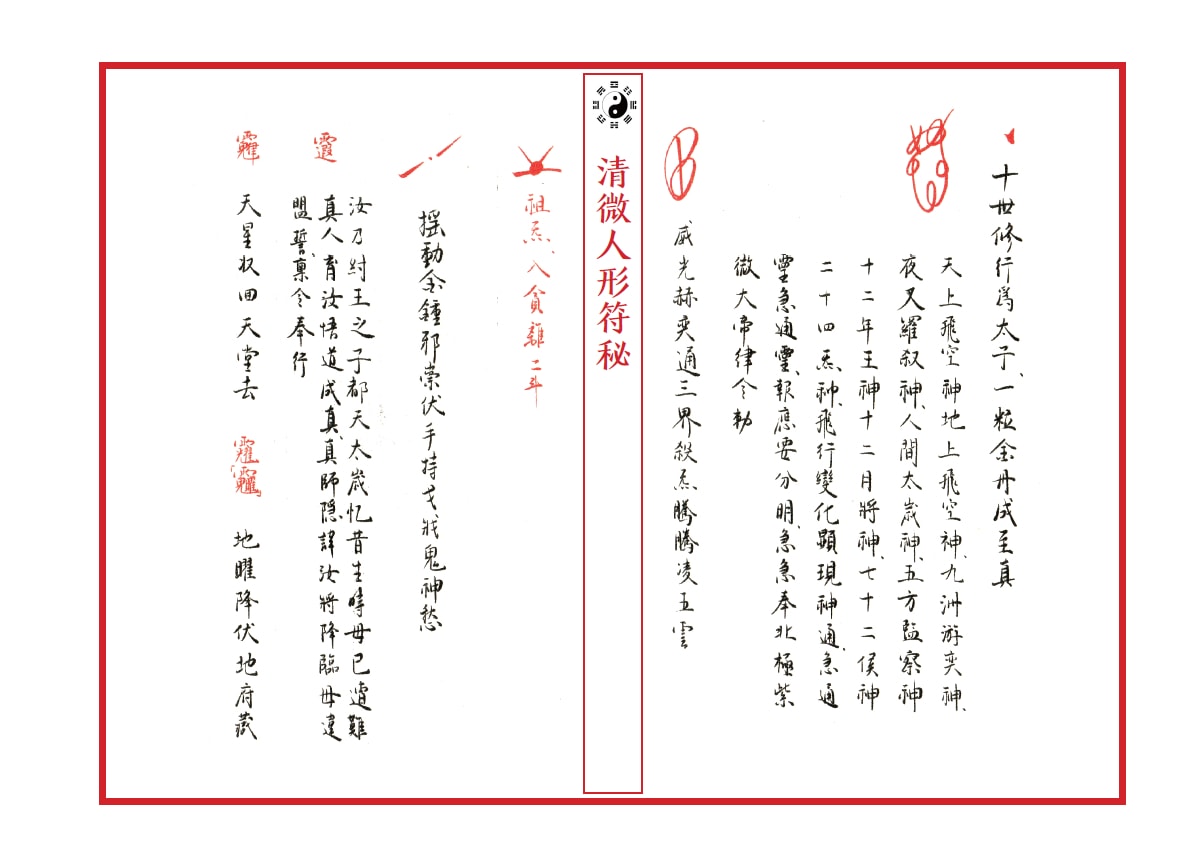 十世修行爲太子、一粒金丹成至真
天上飛空神地上飛空神、九洲游奕神、
夜叉羅叔神、人間太歲神、五方監察神
十二年王神十二月將神、七十二侯神
二十四炁神、飛行變化顯現神通、急通
靈急通靈、報應要分明、急急奉北極紫
微大帝律令勅
威光赫奕通三界殺炁騰騰凌五雲
清微人形符秘
祖炁、入貪離二斗
揺動金鍾邪祟伏手持戈戕鬼神愁
汝乃紂王之子都天太歲忆昔生時母已遭難
真人育汝悟道成真、真師隱諱汝將降臨毋違
盟誓、禀令奉行
天星収回天堂去
地曜降伏地府藏